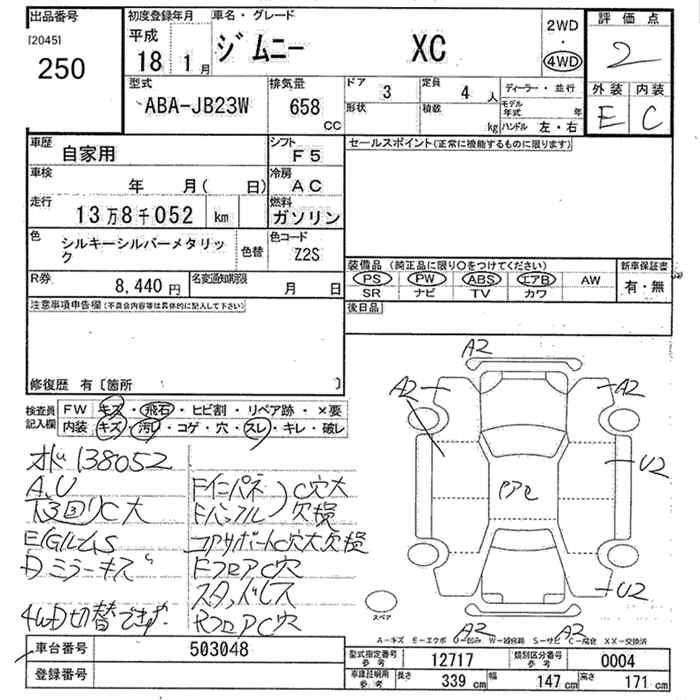 出品番号
[2045]
250
初度登録年月
平成
18年 1月
車名・グレード
ジムニー XC
2WD
・
4WD
評価点
2
外装 内装
E C
型式
ABA-JB23W
排気量
658
CC
ドア 3
形状
定員 4 人
積載 kg
ディーラー・並行
モデル年式 年
ハンドル 左・右
車歴
自家用
シフト
F5
車検
年 月( 日)
冷房
AC
走行
13万8千052 km
燃料
ガソリン
色
シルキーシルバーメタリック
色替
色コード
Z2S
R券
8,440円
名変通知期限
月 日
セールスポイント(正常に機能するものに限ります)
装備品 (純正品に限り○をつけてください)
PS PW ABS エアB AW
SR ナビ TV カワ
新車保証書
有・無
後日品
注意事項申告欄(不具合内容等は具体的に記入して下さい)
修復歴 有〔箇所 〕
検査員記入欄
FW キズ・飛石・ヒビ割・リペア跡・×要
内装 キズ・汚れ・コゲ・穴・スレ・キレ・破レ
138052
A,U
下回りC大
E/Gルームs
Dミラーキズ
4WD切替できず
Fインパネ)C穴大
欠損
コアサポートC穴大欠損
FフロアC穴
RフロアC穴
A2
A2
A2
U2
U2
A2
A2
スペア
A-キズ E-エクボ U-凹み W-補修跡 S-サビ C-腐食 XX-交換済
車台番号
503048
登録番号
型式指定番号 参考 12717
類別区分番号 参考 0004
車庫証明用 参考 長さ 339 cm 幅 147 cm 高さ 171 cm